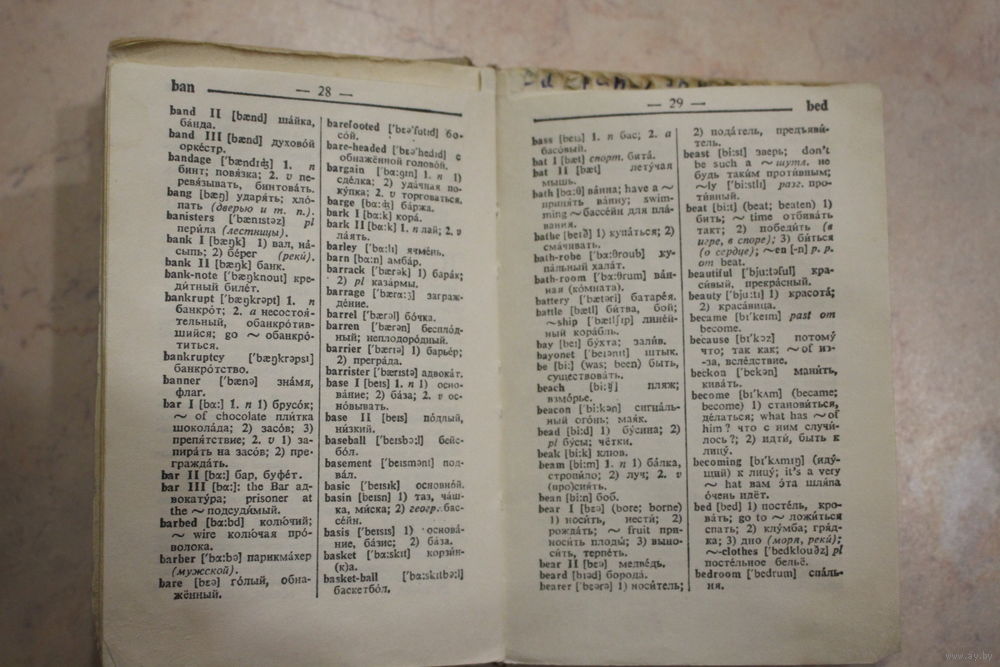 ban
— 28 —
band II [bænd] ша́йка,
ба́нда.
band III [bænd] духово́й
орке́стр.
bandage ['bændıʤ] 1. n
бинт; повя́зка; 2. v пе-
ревя́зывать, бинтова́ть.
bang [bæŋ] ударя́ть; хло́-
пать (дверью и т. п.).
banisters ['bænıstəz] pl
пери́ла (лестницы).
bank I [bæŋk] 1) вал, на́-
сыпь; 2) бе́рег (реки).
bank II [bæŋk] банк.
bank-note ['bæŋknout] кре-
ди́тный биле́т.
bankrupt ['bæŋkrəpt] 1. n
банкро́т; 2. a несостоя́-
тельный, обанкро́тив-
шийся; go ~ обанкро́-
титься.
bankruptcy ['bæŋkrəpsı]
банкро́тство.
banner ['bænə] зна́мя,
флаг.
bar I [bɑ:] 1. n 1) брусо́к;
~ of chocolate пли́тка
шокола́да; 2) засо́в; 3)
препя́тствие; 2. v 1) за-
пира́ть на засо́в; 2) пре-
гражда́ть.
bar II [bɑ:] бар, буфе́т.
bar III [bɑ:]: the Bar ад-
вокату́ра; prisoner at
the ~ подсуди́мый.
barbed [bɑ:bd] колю́чий;
~ wire колю́чая про́-
волока.
barber ['bɑ:bə] парикма́хер
(мужской).
bare [bɛə] го́лый, обна-
жённый.
barefooted ['bɛə'futıd] бо-
со́й.
bare-headed ['bɛə'hedıd] с
обнажённой голово́й.
bargain ['bɑ:gın] 1. n 1)
сде́лка; 2) уда́чная по-
ку́пка; 2. v торгова́ться.
barge [bɑ:ʤ] ба́ржа.
bark I [bɑ:k] кора́.
bark II [bɑ:k] 1. n лай; 2. v
ла́ять.
barley ['bɑ:lı] ячме́нь.
barn [bɑ:n] амба́р.
barrack ['bærək] 1) бара́к;
2) pl каза́рмы.
barrage ['bærɑ:ʒ] загражде́-
ние.
barrel ['bærəl] бо́чка.
barren ['bærən] беспло́д-
ный; неплодоро́дный.
barrier ['bærıə] 1) барье́р;
2) прегра́да.
barrister ['bærıstə] адвока́т.
base I [beıs] 1. n 1) осно-
ва́ние; 2) ба́за; 2. v ос-
но́вывать.
base II [beıs] по́длый,
ни́зкий.
baseball ['beısbɔ:l] бейс-
бо́л.
basement ['beısmənt] под-
ва́л.
basic ['beısık] основно́й.
basin [beısn] 1) таз, ча́ш-
ка, ми́ска; 2) геогр. бас-
се́йн.
basis ['beısıs] 1) основа́-
ние, ба́зис; 2) ба́за.
basket ['bɑ:skıt] корзи́н-
(к)а.
basket-ball ['bɑ:skıtbɔ:l]
баскетбо́л.
— 29 —
bed
bass [beıs] 1. n бас; 2. a
басо́вый.
bat I [bæt] спорт. бита́.
bat II [bæt] лету́чая
мышь.
bath [bɑ:θ] ва́нна; have a ~
приня́ть ва́нну; swim-
ming ~ бассе́йн для пла́-
вания.
bathe [beıð] 1) купа́ться; 2)
сма́чивать.
bath-robe ['bɑ:θroub] ку-
па́льный хала́т.
bath-room ['bɑ:θrum] ва́н-
ная (ко́мната).
battery ['bætərı] батаре́я.
battle [bætl] би́тва, бой;
~ship ['bætlʃıp] лине́й-
ный кора́бль.
bay [beı] бу́хта; зали́в.
bayonet ['beıənıt] штык.
be [bi:] (was; been) быть,
существова́ть.
beach [bi:ʧ] пляж;
взмо́рье.
beacon ['bi:kən] сигна́ль-
ный ого́нь; мая́к.
bead [bi:d] 1) бу́сина; 2)
pl бу́сы; чётки.
beak [bi:k] клюв.
beam [bi:m] 1. n 1) ба́лка,
стропи́ло; 2) луч; 2. v
(про)сия́ть.
bean [bi:n] боб.
bear I [bɛə] (bore; borne)
1) носи́ть, нести́; 2)
рожда́ть; ~ fruit при-
носи́ть плоды́; 3) выно-
си́ть, терпе́ть.
bear II [bɛə] медве́дь.
beard [bıəd] борода́.
bearer ['bɛərə] 1) носи́тель;
2) пода́тель, предъяви́-
тель.
beast [bi:st] зверь; don't
be such a ~ шутл. не
будь таки́м проти́вным;
~ly ['bi:stlı] разг. про-
ти́вный.
beat [bi:t] (beat; beaten) 1)
бить; ~ time отбива́ть
такт; 2) победи́ть (в
игре, в споре); 3) би́ться
(о сердце); ~en [-n] p. p.
от beat.
beautiful ['bju:təful] кра-
си́вый, прекра́сный.
beauty ['bju:tı] 1) красота́;
2) краса́вица.
became [bı'keım] past от
become.
because [bı'kɔz] потому́
что; так как; ~ of из-
-за, всле́дствие.
beckon ['bekən] мани́ть,
кива́ть.
become [bı'kʌm] (became;
become) 1) станови́ться,
де́латься; what has ~ of
him? что с ним случи́-
лось?; 2) идти́, быть к
лицу́.
becoming [bı'kʌmıŋ] (иду́-
щий) к лицу́; it's a very
~ hat вам э́та шля́па
о́чень идёт.
bed [bed] 1) посте́ль, кро-
ва́ть; go to ~ ложи́ться
спать; 2) клу́мба; гря́д-
ка; 3) дно (моря, реки);
~-clothes ['bedklouðz] pl
посте́льное бельё.
bedroom ['bedrum] спа́ль-
ня.
www.ay.by